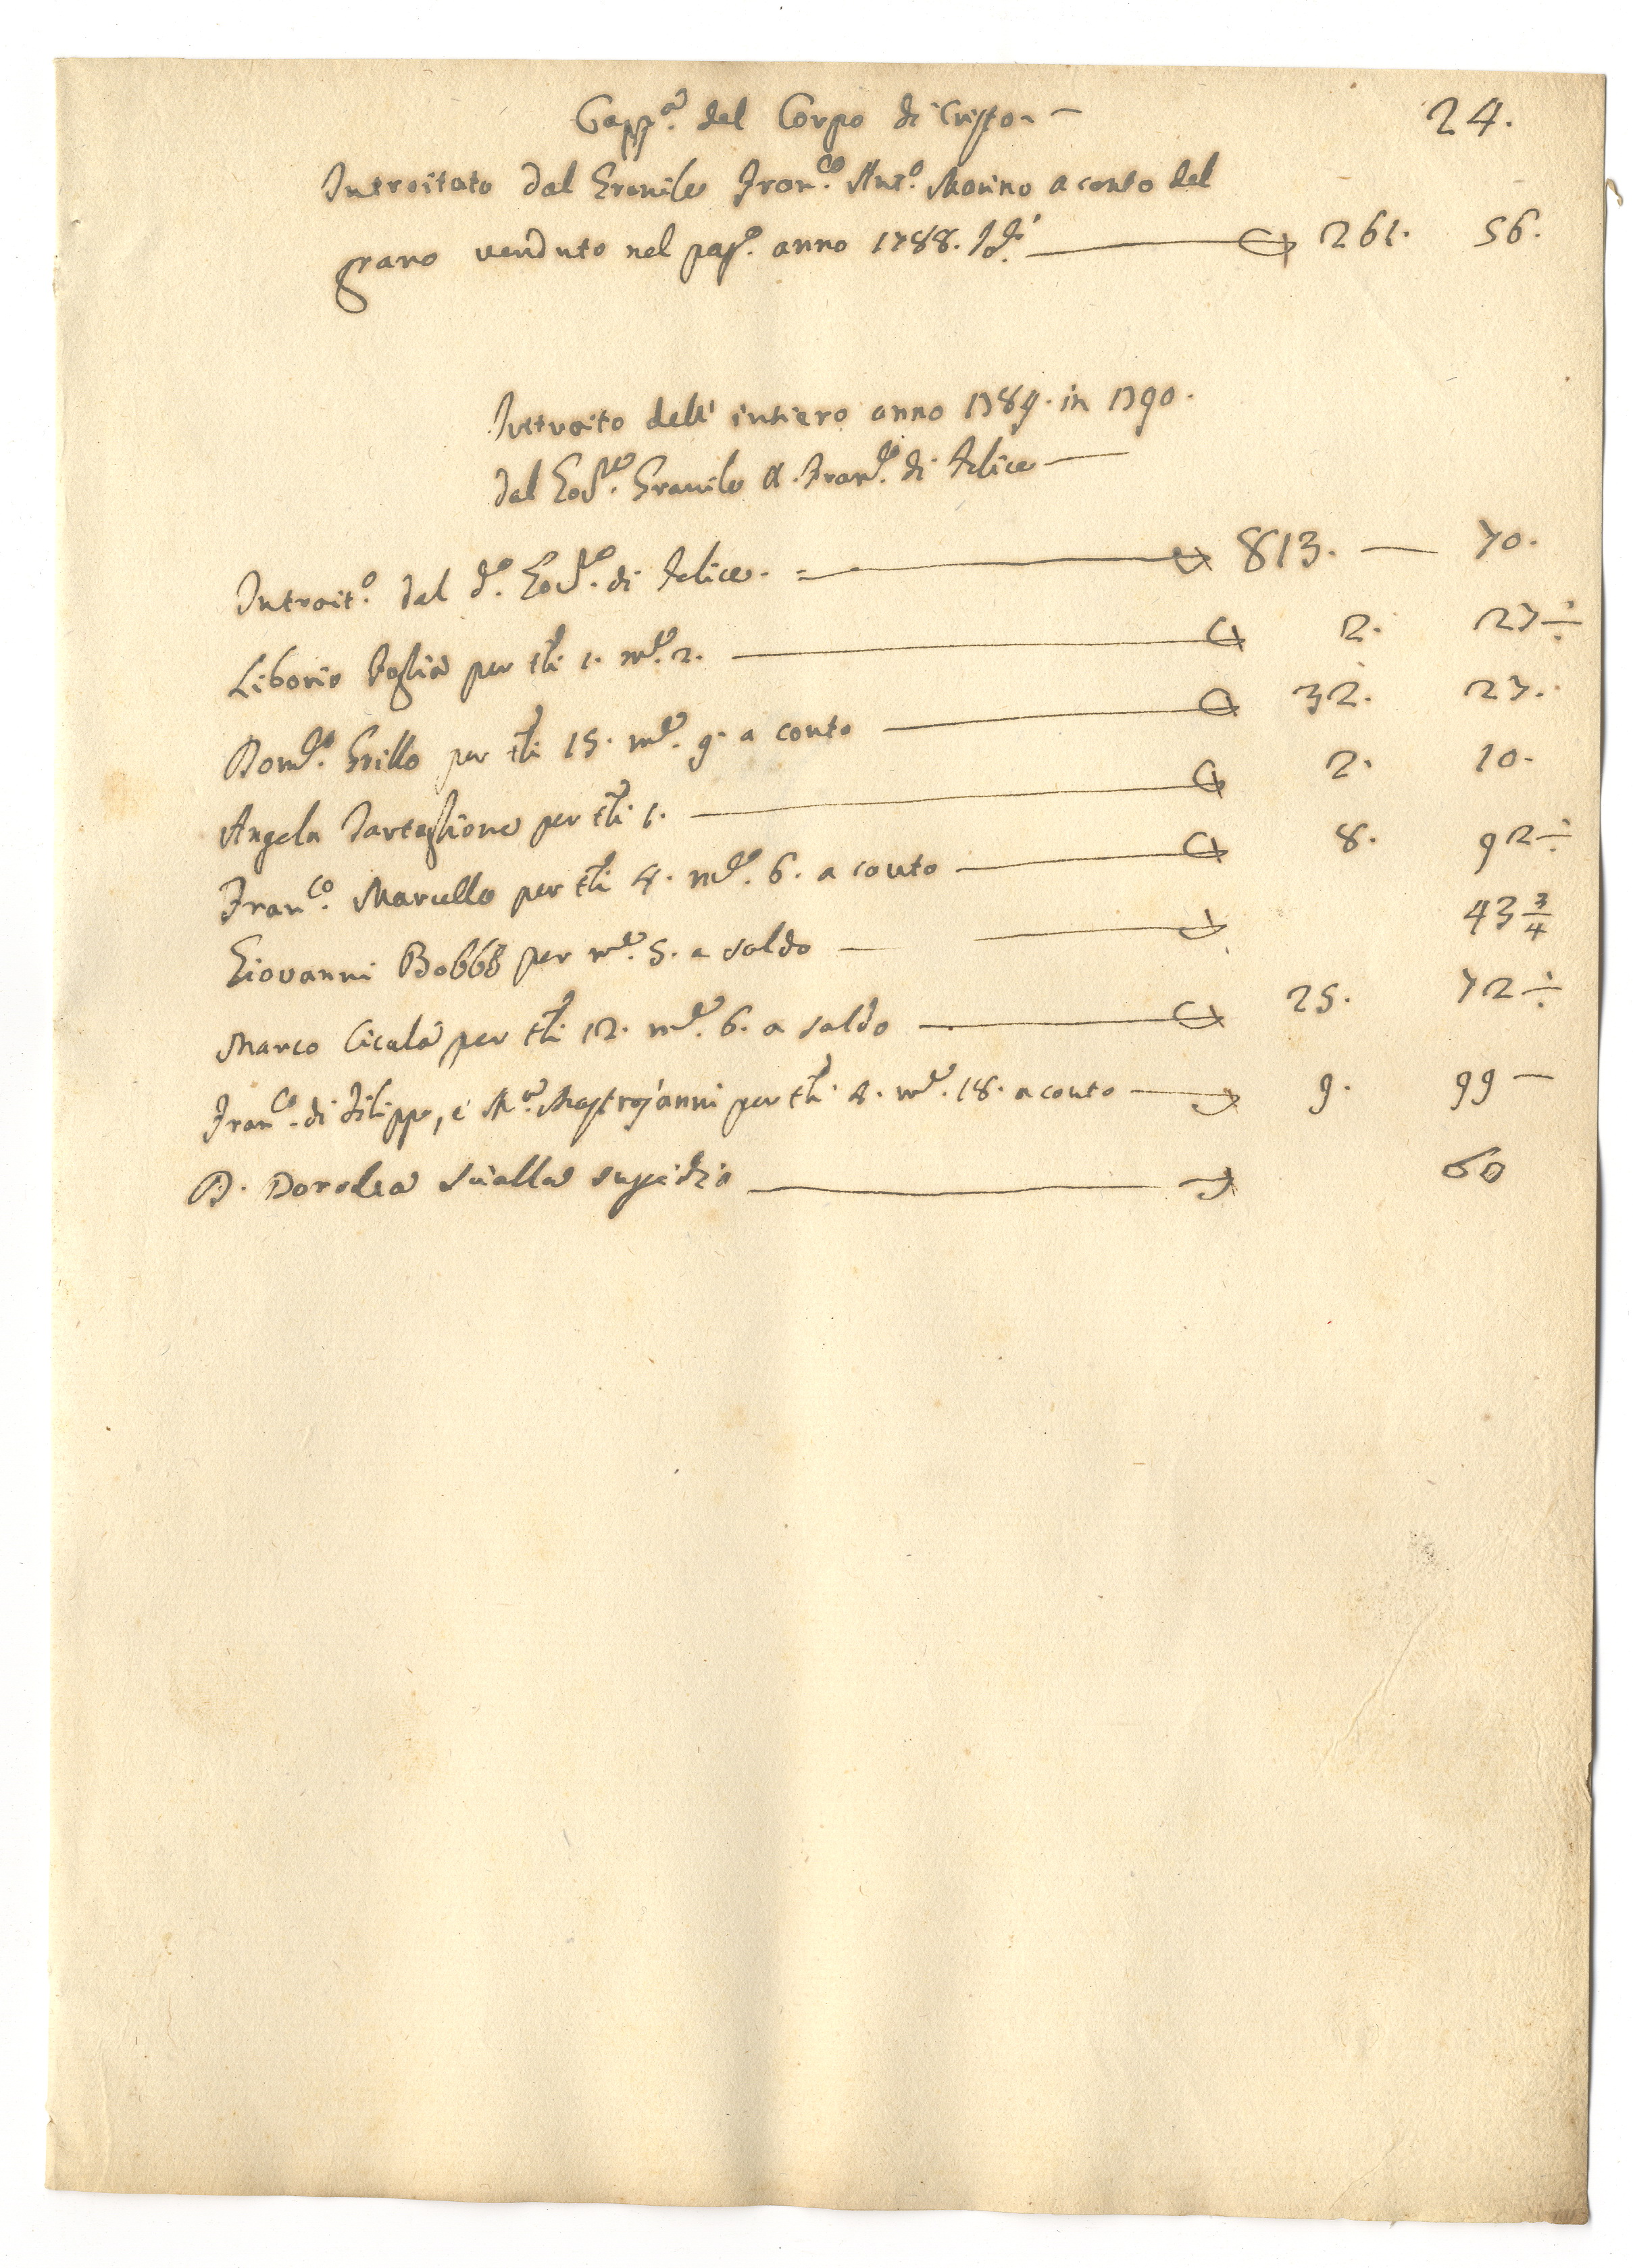 Capp.a del Corpo di Cristo. — 24.
Introitato dal Granile Fran.co Ant.o Marino a conto del
grano venduto nel pas.o anno 1788. — 261. 56.
Introito dell' intiero anno 1789. in 1790.
dal Granile D. Fran.co di Felice —
Introit.o dal d.o di Felice. = — 813. — 70.
Liborio Foglia per tli 1. m.e 2. — 2. 27 ÷
Dom.co Grillo per tli 15. m.e 9. a conto — 32. 27.
Angela Tartaglione per tli 1. — 2. 10.
Fran.co Marcello per tli 4. m.e 6. a conto — 8. 92 ÷
Giovanni Bobbo per m.e 5. a saldo — 43 3/4
Marco Cicala per tli 12. m.e 6. a saldo — 25. 72 ÷
Fran.co di Filippo, e M.o Mastrojanni per tli 4. m.e 18. a conto — 9. 99 —
D. Dorodea — 60